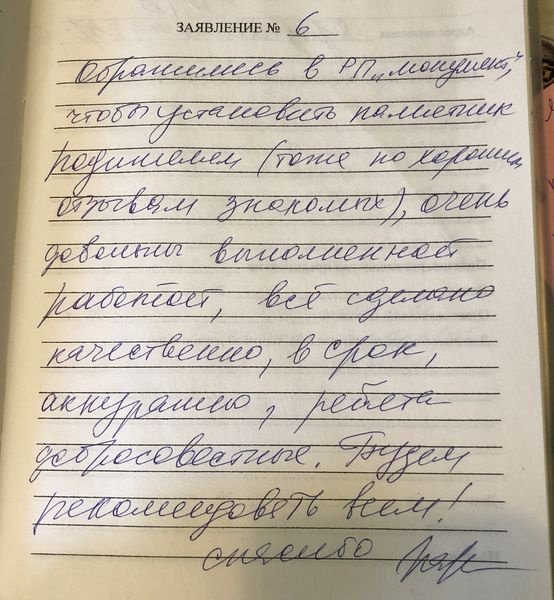 ЗАЯВЛЕНИЕ № 6
Обратились в РП „монумент",
чтобы установить памятник
родителям (тоже по хорошим
отзывам знакомых), очень
довольны выполненной
работой, всё сделано
качественно, в срок,
аккуратно, ребята
добросовестные. Будем
рекомендовать всем!
спасибо